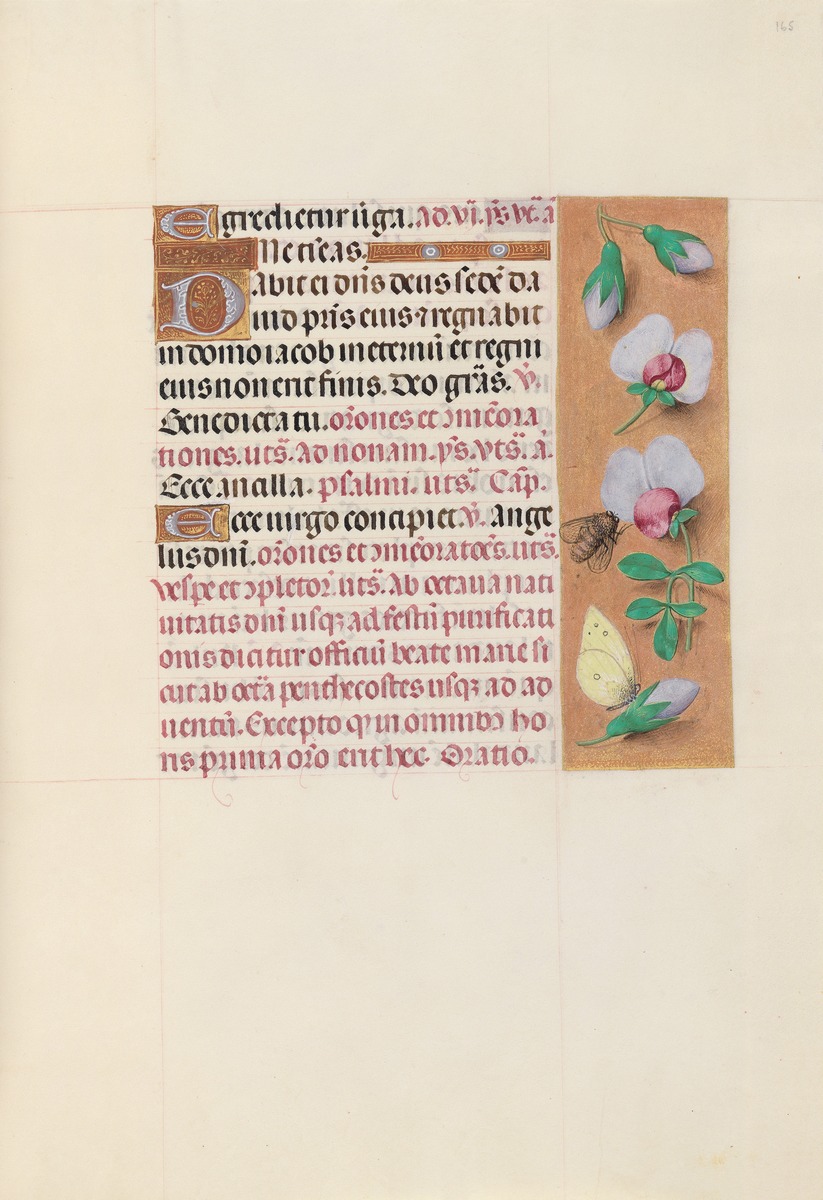 165
Egredietur uirga. Ad. vi. ps̄ vt̄. ā
Ne tīeas.
Dabit ei dn̄s deus sedē da
uid prīs eius ⁊ regnabit
in domo iacob in eternū et regni
eius non erit finis. Deo grās. v̄.
Benedicta tu. orōnes et ↄmēora
tiones. uts̄. Ad nonam. ps̄. vts̄. ā.
Ecce ancilla. psalmi. uts̄ Cap̄.
Ecce uirgo concipiet. v̄. Ange
lus dnī. orōnes et ↄmēoratōes. uts̄.
Vesṕe et ↄpletor̄. uts̄. Ab octaua nati
uitatis dnī usqꝫ ad festū purificati
onis dicitur officiū beate marie si
cut ab octā penthecostes usqꝫ ad ad
uentū. Excepto ꝙ in omnibꝫ ho
ris prima orō erit hec. Oratio.